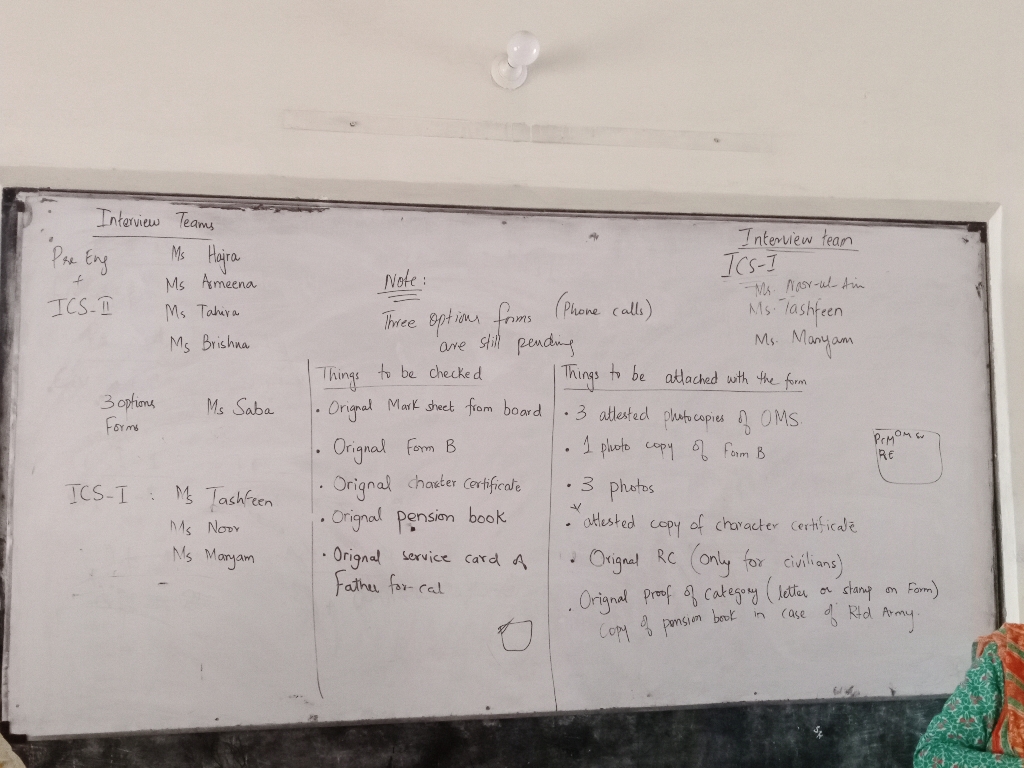 Interview Teams
Pre Eng
+
ICS-II
Ms Hajra
Ms Ameena
Ms Tahira
Ms Brishna
3 options
Forms
Ms Saba
ICS-I : Ms Tashfeen
Ms Noor
Ms Maryam
Note:
Three options forms (Phone calls)
are still pending
Interview team
ICS-I
Ms. Noor-ul-Ain
Ms. Tashfeen
Ms. Maryam
Things to be checked
• Orignal Mark sheet from board
• Orignal Form B
• Orignal charter certificate
• Orignal pension book
• Orignal service card of
Father for cat
Things to be attached with the form
• 3 attested photocopies of OMS.
• 1 photo copy of Form B
• 3 photos
• * attested copy of character certificate
• Orignal RC (Only for civilians)
• Orignal Proof of category (letter or stamp on Form)
Copy of pension book in case of Rtd Army.
RE